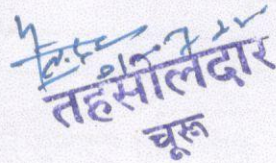 तहसीलदार
चूरू